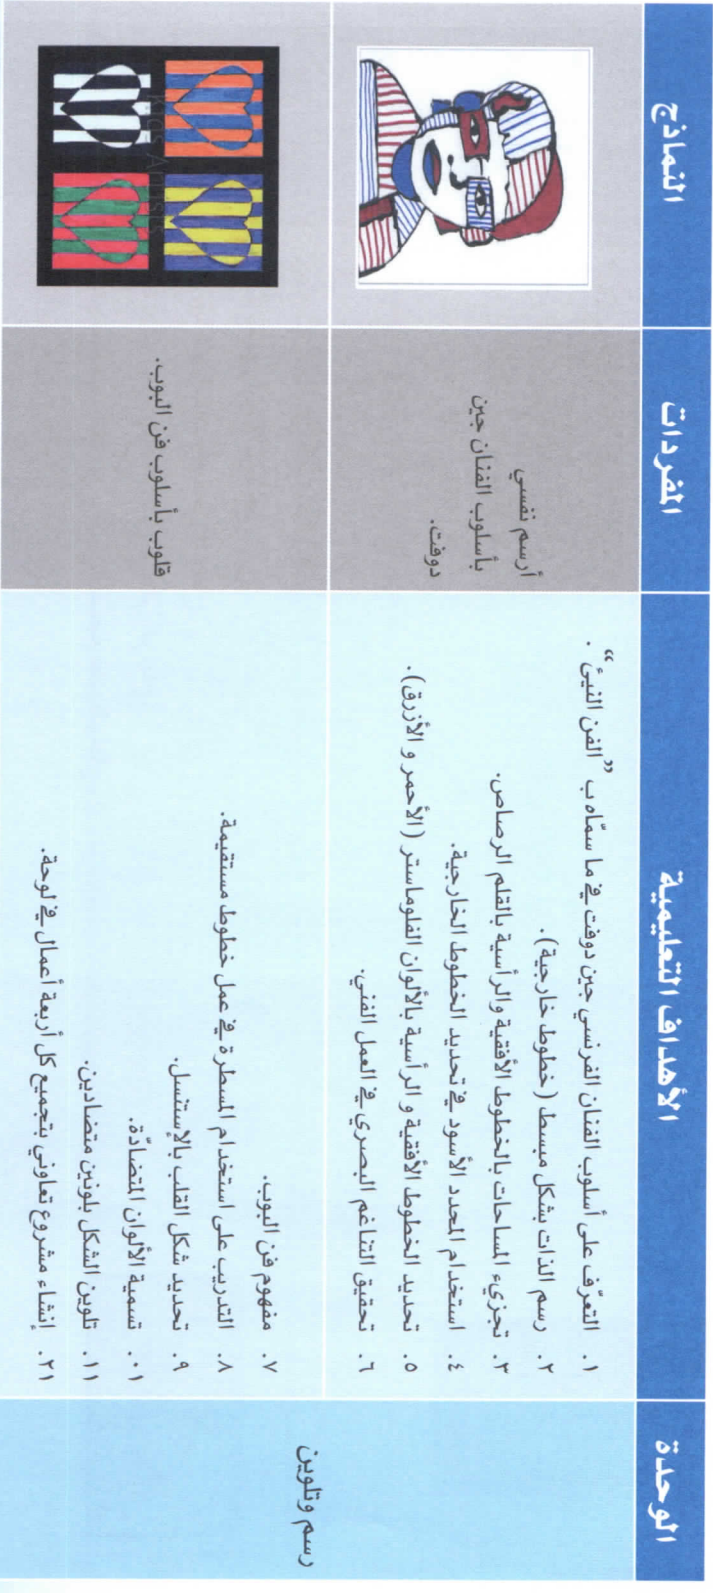 الوحدة
الأهداف التعليمية
المفردات
النماذج
رسم وتلوين
١. التعرّف على أسلوب الفنان الفرنسي جين دوفت في ما سمّاه ب ”الفن النيئ“.
٢. رسم الذات بشكل مبسط (خطوط خارجية).
٣. تجزيء المساحات بالخطوط الأفقية والرأسية بالقلم الرصاص.
٤. استخدام المحدد الأسود في تحديد الخطوط الخارجية.
٥. تحديد الخطوط الأفقية و الرأسية بالألوان الفلوماستر (الأحمر و الأزرق).
٦. تحقيق التناغم البصري في العمل الفني.
أرسم نفسي
بأسلوب الفنان جين
دوفت.
٧. مفهوم فن البوب.
٨. التدريب على استخدام المسطرة في عمل خطوط مستقيمة.
٩. تحديد شكل القلب بالإستنسل.
٠١. تسمية الألوان المتضادّة.
١١. تلوين الشكل بلونين متضادين.
٢١. إنشاء مشروع تعاوني بتجميع كل أربعة أعمال في لوحة.
قلوب بأسلوب فن البوب.